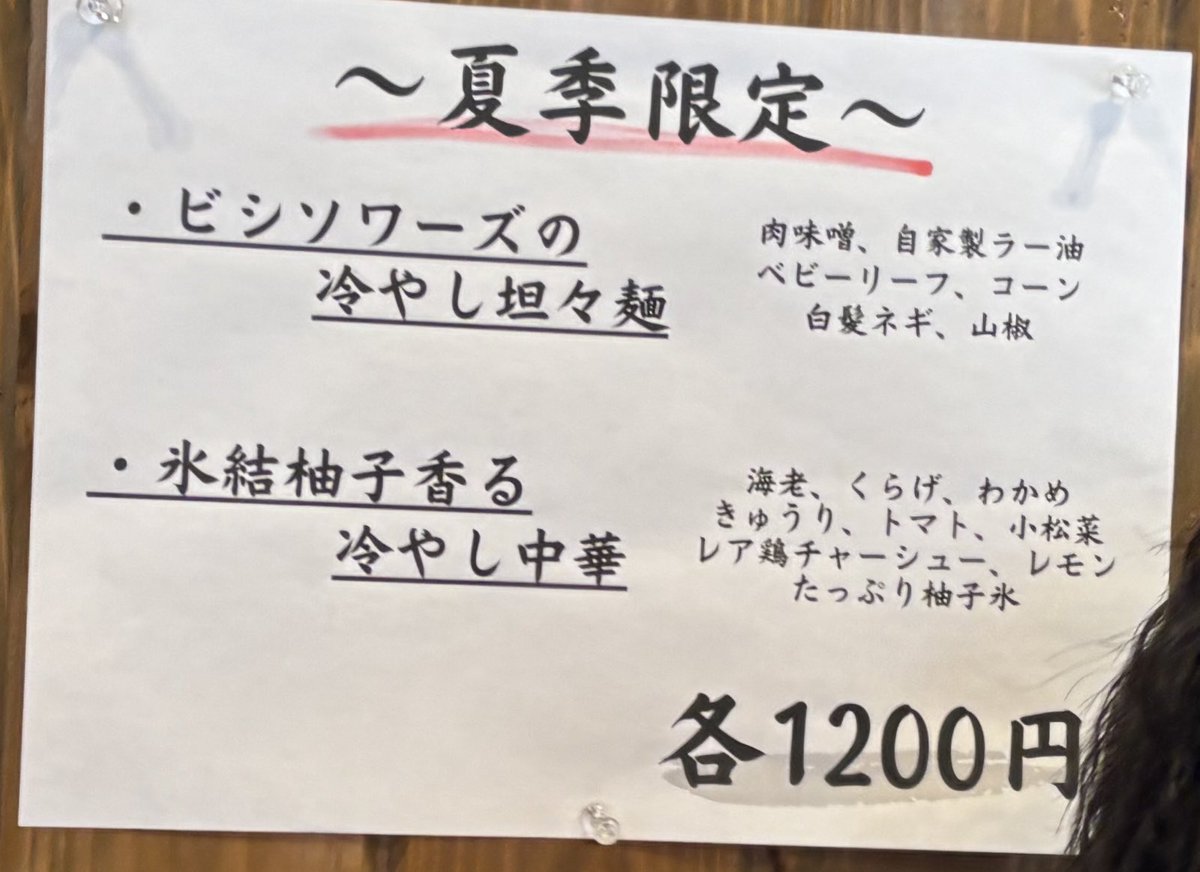 ～夏季限定～
・ビシソワーズの
冷やし坦々麺
肉味噌、自家製ラー油
ベビーリーフ、コーン
白髪ネギ、山椒
・氷結柚子香る
冷やし中華
海老、くらげ、わかめ
きゅうり、トマト、小松菜
レア鶏チャーシュー、レモン
たっぷり柚子氷
各1200円